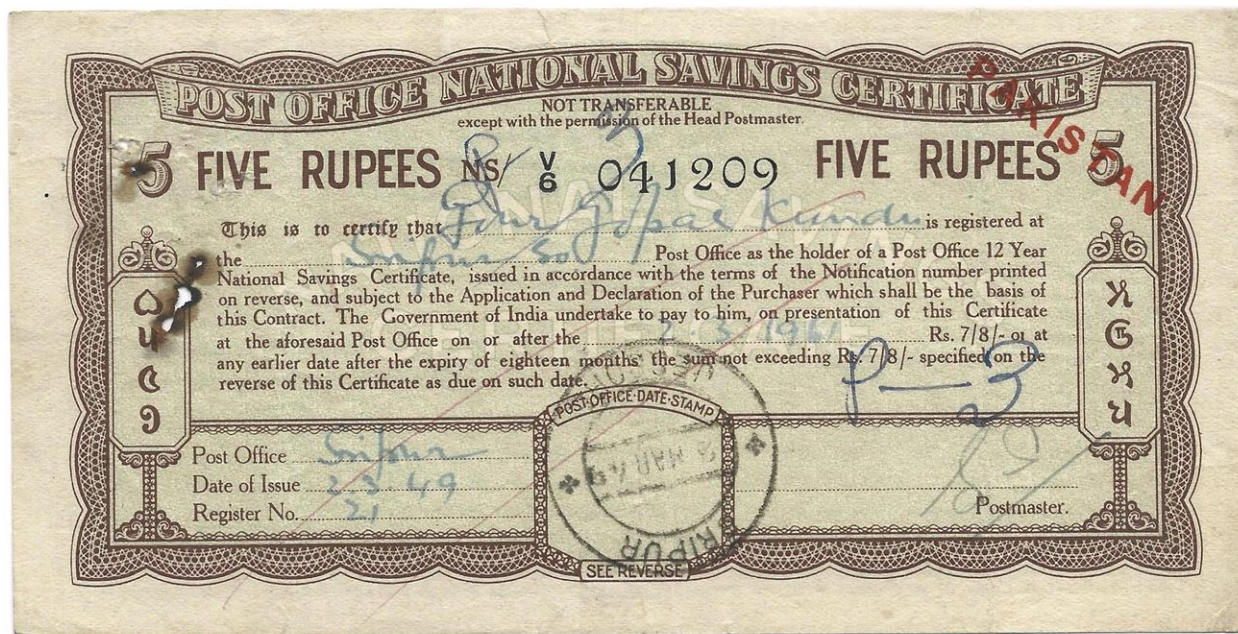 POST OFFICE NATIONAL SAVINGS CERTIFICATE
PAKISTAN
NOT TRANSFERABLE
except with the permission of the Head Postmaster.
5 FIVE RUPEES NS/ V/6 041209 FIVE RUPEES 5
This is to certify that Gour Gopal Kundu is registered at
the Sripur So Post Office as the holder of a Post Office 12 Year
National Savings Certificate, issued in accordance with the terms of the Notification number printed
on reverse, and subject to the Application and Declaration of the Purchaser which shall be the basis of
this Contract. The Government of India undertake to pay to him, on presentation of this Certificate
at the aforesaid Post Office on or after the 2 3 1961 Rs. 7/8/- or at
any earlier date after the expiry of eighteen months the sum not exceeding Rs. 7/8/- specified on the
reverse of this Certificate as due on such date.
POST·OFFICE·DATE·STAMP
Post Office Sripur
Date of Issue 2 3 49
Register No. 21
Postmaster.
MAR 49
RIPUR
SEE REVERSE